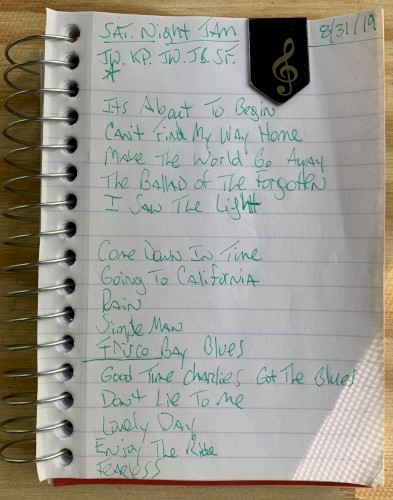 SAT. Night JAM 8/31/19
JW. KP. JW. JB. SF.
*
Its About To Begin
Can't Find My Way Home
Make The World Go Away
The Ballad of The Forgotten
I Saw The Light
Come Down In Time
Going To California
Rain
Simple Man
Frisco Bay Blues
Good Time Charlies Got The Blues
Don't Lie To Me
Lovely Day
Enjoy The Ride
Fearless